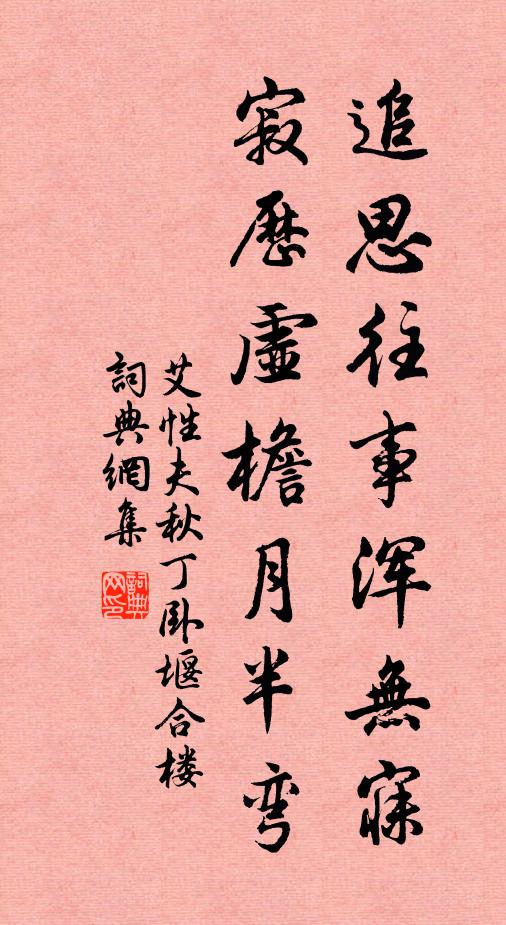 追思往事浑無寐
寂歷虛檐月半弯
艾性夫秋丁卧堰合楼
詞典網集
詞典网印